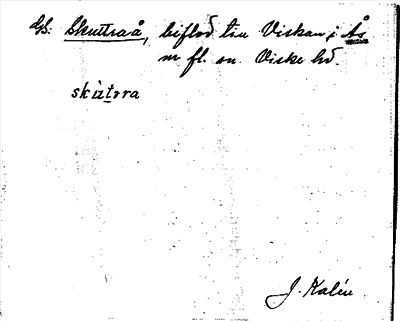 ds. Skuttraå, biflod till Viskan i Ås
m fl. sn. Viske hd.
skùtrra
J. Kalén